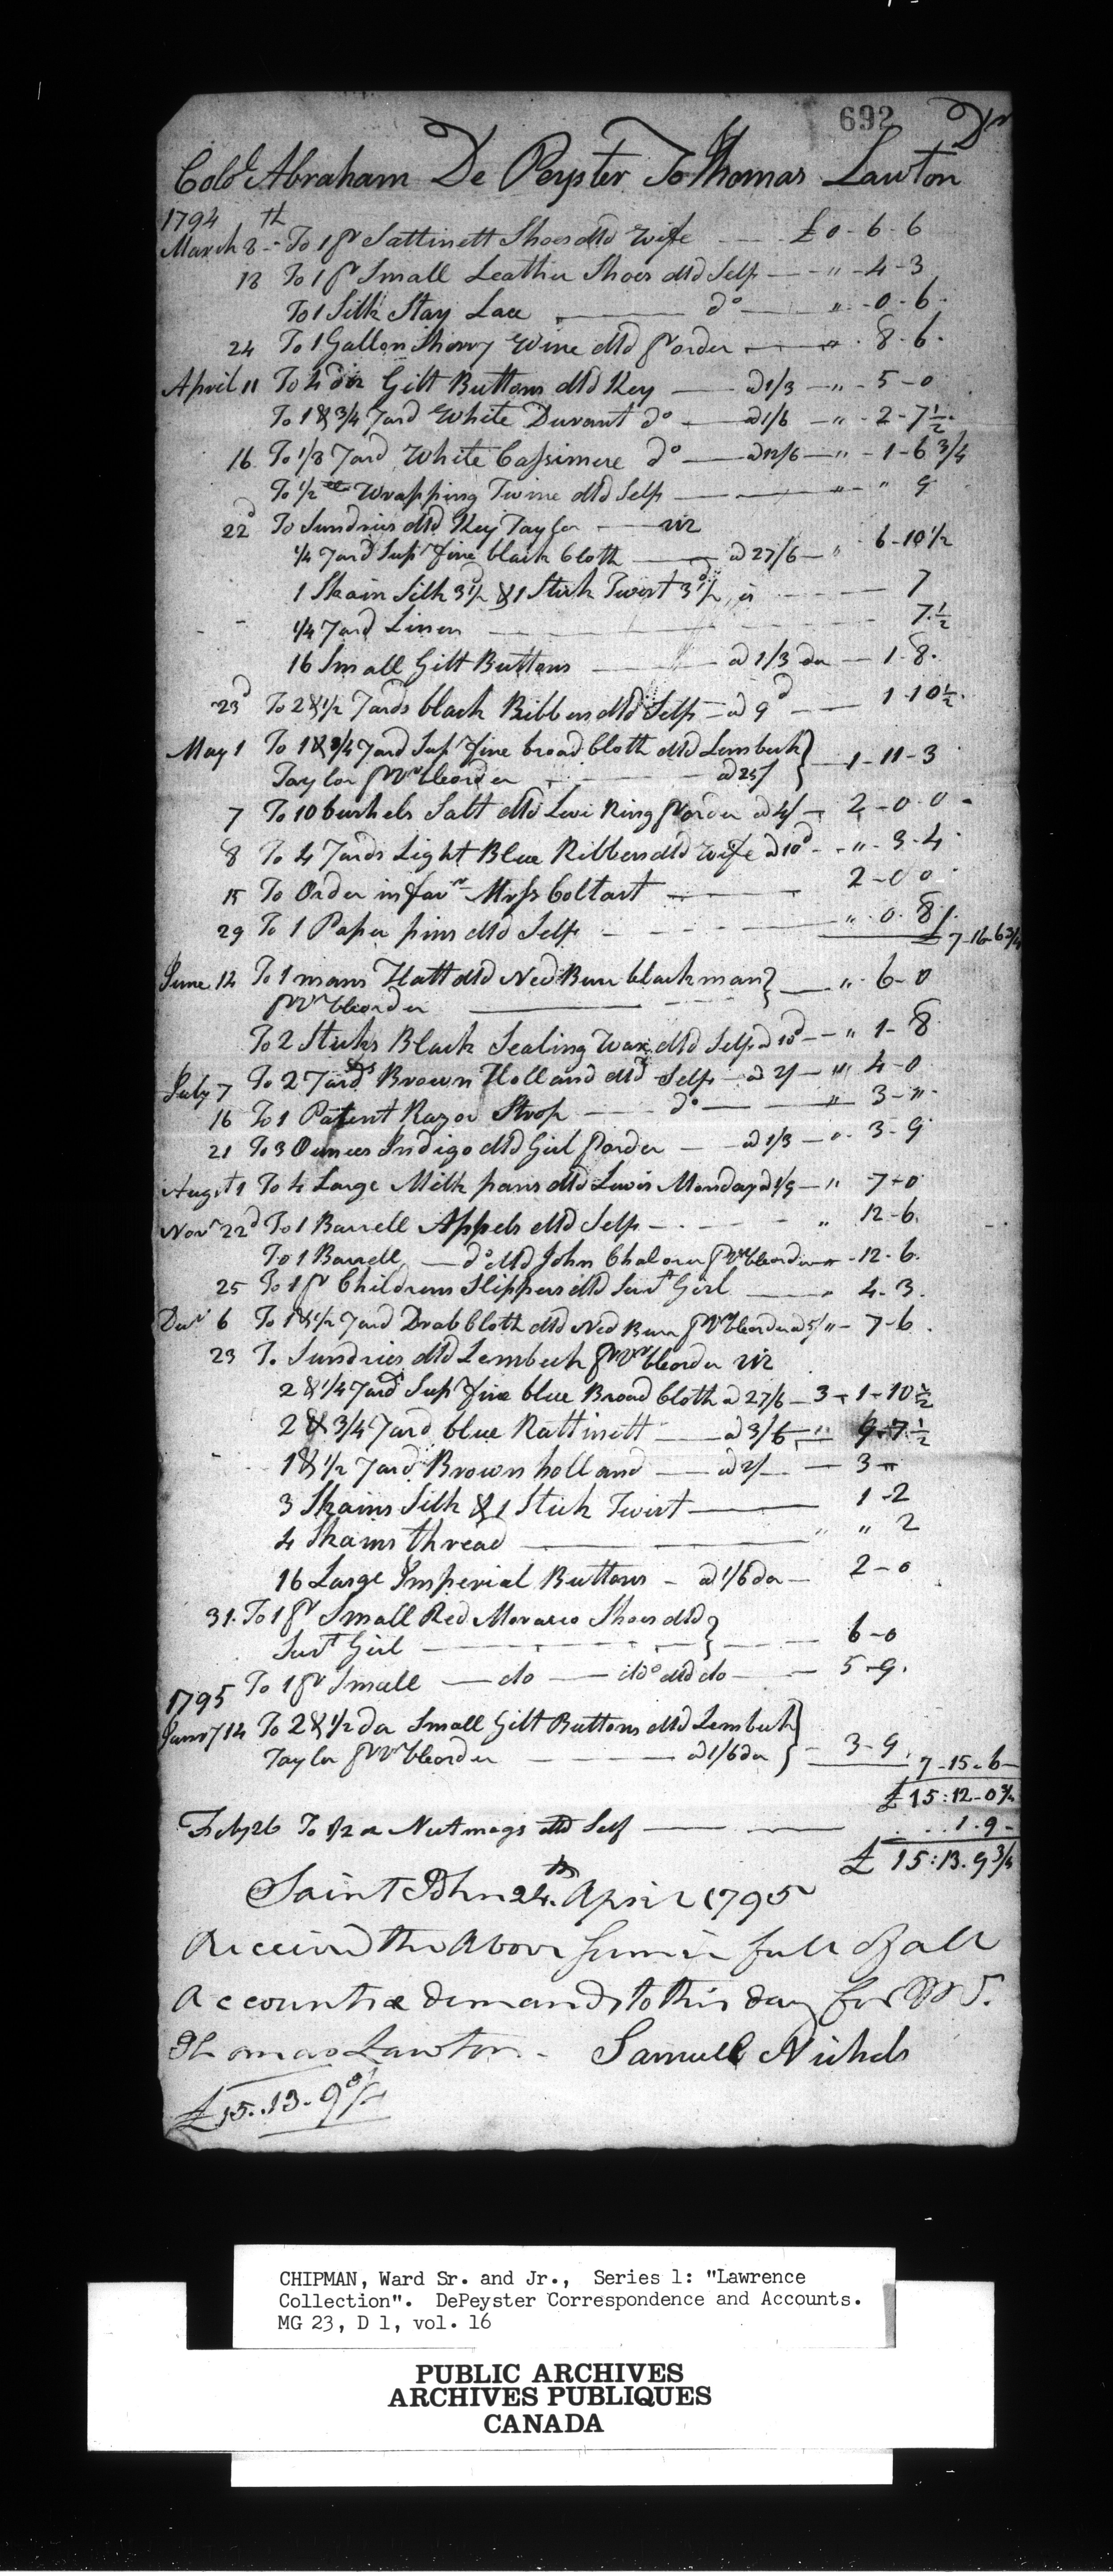 692
Dr
Colo Abraham De Peyster To Thomas Lawton
1794
March 8th To 1 pr Sattinett Shoes dld Wife £0-6-6
18 To 1 pr Small Leather Shoes dld Self " -4-3
To 1 Silk Stay Lace do " -0-6
24 To 1 Gallon Sherry Wine dld pr order " 8-6
April 11 To 4 doz Gilt Buttons dld Key @ 1/3 " 5-0
To 1 & 3/4 Yard White Durant do @ 1/6 " 2-7 1/2
16 To 1/8 Yard White Cassimere do @ 12/6 " 1-6 3/4
To 1/2 Wrapping Twine dld Self " " 9
22d To Sundries dld Key Taylor viz
1/4 Yard Supr fine black Cloth @ 27/6 " 6-10 1/2
1 Skain Silk 3 1/2d & 1 Stick Twist 3 1/2d is 7
1/4 Yard Linen 7 1/2
16 Small Gilt Buttons @ 1/3 doz 1-8
23d To 2 & 1/2 Yards black Ribben dld Self @ 9d 1-10 1/2
May 1 To 1 & 1/4 Yard Supr fine broad Cloth dld Lembech
Taylor pr Vr bleorder @ 25/ 1-11-3
7 To 10 bushels Salt dld Levi Ring pr order @ 4/ 2-0-0
8 To 4 Yards Light Blue Ribben dld Wife @ 10d " 3-4
15 To Order in favr Mrss Coltart 2-0-0
29 To 1 Paper pins dld Self " 0-8
£7-16-6 3/4
June 12 To 1 mans Hatt dld Ned Burr blackman
pr Vr bleorder " 6-0
To 2 Sticks Black Sealing Wax dld Self @ 10d " 1-8
July 7 To 2 Yards Brown Holland dld Self @ 2/ " 4-0
16 To 1 Patent Razor Strop do " 3-"
21 To 3 Ounces Indigo dld Girl pr order @ 1/3 " 3-9
Augst 1 To 4 Large Milk pans dld Lewis Monday @ 1/9 " 7-0
Novr 22d To 1 Barrell Appels dld Self " 12-6
To 1 Barrell do dld John Chaloner pr Vr bleorder " 12-6
25 To 1 pr Childrens Slippers dld Servt Girl " 4-3
Decr 6 To 1 & 1/2 Yard Drab Cloth dld Ned Burr pr Vr bleorder @ 5/ " 7-6
23 To Sundries dld Lembech pr Vr bleorder viz
2 & 1/4 Yard Supr fine blue Broad Cloth @ 27/6 3-1-10 1/2
2 & 3/4 Yard blue Rattinett @ 3/6 " 9-7 1/2
1 & 1/2 Yard Brown holland @ 2/ 3-"
3 Skains Silk & 1 Stick Twist 1-2
4 Skains thread " " 2
16 Large Imperial Buttons @ 1/6 doz 2-0
31 To 1 pr Small Red Morocco Shoes dld
Servt Girl 6-0
To 1 pr Small do do dld do 5-9
1795
Janry 14 To 2 & 1/2 doz Small Gilt Buttons dld Lembech
Taylor pr Vr bleorder @ 1/6 doz 3-9
7-15-6
£15:12-0 3/4
Feby 26 To 1/2 oz Nutmegs dld Self 1-9
£15:13-9 3/4
Saint John 24th April 1795
Received the Above sum in full of all
Accounts & demands to this day for Mr
Thomas Lawton Samuel Nichols
£15..13-9 3/4
CHIPMAN, Ward Sr. and Jr., Series 1: "Lawrence
Collection". DePeyster Correspondence and Accounts.
MG 23, D 1, vol. 16
PUBLIC ARCHIVES
ARCHIVES PUBLIQUES
CANADA